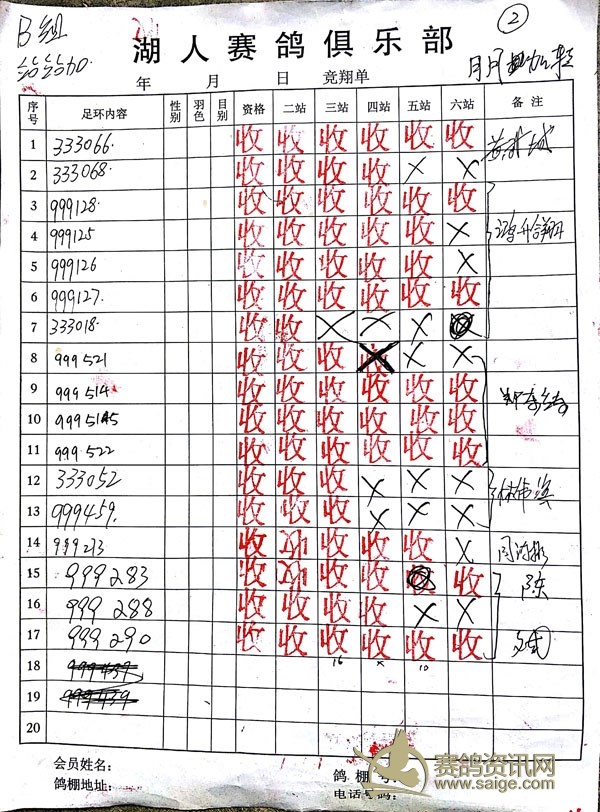 B组
②
湖人赛鸽俱乐部
年 月 日 竞翔单
序号 足环内容 性别 羽色 目别 资格 二站 三站 四站 五站 六站 备注
1 333066. 收 收 收 收 收 收
2 333068. 收 收 收 收 × ×
3 999128. 收 收 收 收 收 收
4 999125 收 收 收 收 收 ×
5 999126 收 收 收 收 收 ×
6 999127. 收 收 收 收 收 收
7 333018. 收 收 × × ×
8 999521 收 收 收 × × ×
9 999514 收 收 收 收 收 收
10 9995145 收 收 收 收 收 收
11 999522 收 收 收 收 收 收
12 333052 收 收 收 × × ×
13 999459. 收 收 收 × × ×
14 999213 收 收 收 收 收 ×
15 999283 收 收 收 收 收
16 999288 收 收 收 收 × ×
17 999290 收 收 收 收 收 收
16 × 10
18
19
20
会员姓名:
鸽棚地址:
鸽棚号:
电话号码:
赛鸽资讯网
www.saige.com